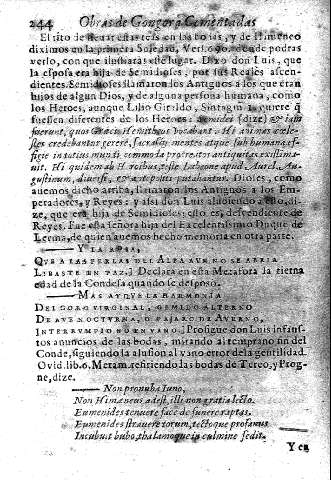 244 Obras de Gongora Comentadas
El rito de
las bodas, y de Himeneo
diximos en la primera Soledad, Vers. donde podras
verlo, con que ilustrarás este lugar. Dixo don Luis, que
la esposa era hija de Semidioses, por sus Reales ascen-
dientes. Semidioses llamaron los Antiguos a los que eran
hijos de algun Dios, y de alguna persona humana, como
los Heroes, aunque Lilio Giraldo, Sintagm. 1. quiere q̃
fuessen diferentes de los Heroes: Semidei (dize) etiam
fuerunt, quos Græci Hemitheos vocabant. Hi animas cæle-
stes credebantur gerere, sacrasq; mentes atque sub humana ef-
figie in totius mundi commoda procreatos antiquitas existima-
uit. Hi quidem ab Heroibus, teste Labeone apud Aurel. Au-
gustinum, diuersi,
putabantur. Dioses, como
auemos dicho arriba, llamaron los Antiguos a los Em-
peradores, y Reyes: y assi don Luis aludiendo a esto, di-
ze, que era hija de Semidioses: esto es, descendiente de
Reyes. Fue esta señora hija del Excelentissimo Duque de
Lerma, de quien auemos hecho memoria en otra parte.
Y LA
QVE A LAS PERLAS DEL ALVA AVN NO SE ABRIA
LIBASTE EN PAZ.] Declara en esta Metafora la tierna
edad de la Condesa quando se desposò.
MAS AY QVE LA HARMONIA
DEL CORO VIRGINAL, GEMIDO ALTERNO
DE AVE NOCTVRNA, O PAJARO DE AVERNO,
INTERRVMPIO NO EN VANO.] Prosigue don Luis infaus-
tos anuncios de las bodas, mirando al temprano fin del
Conde, siguiendo la alusion al vano error de la gentilidad.
Ovid. lib. 6. Metam. refiriendo las bodas de Tereo, y Prog-
ne, dize.
Non pronuba Iuno,
Non Himenæus adest, illi non gratia lecto.
Eumenides tenuere faces de funere raptas.
Eumenides strauere torum, tectoque profanus
Incubuit bubo, thalamoque in culmine sedit.
Y en